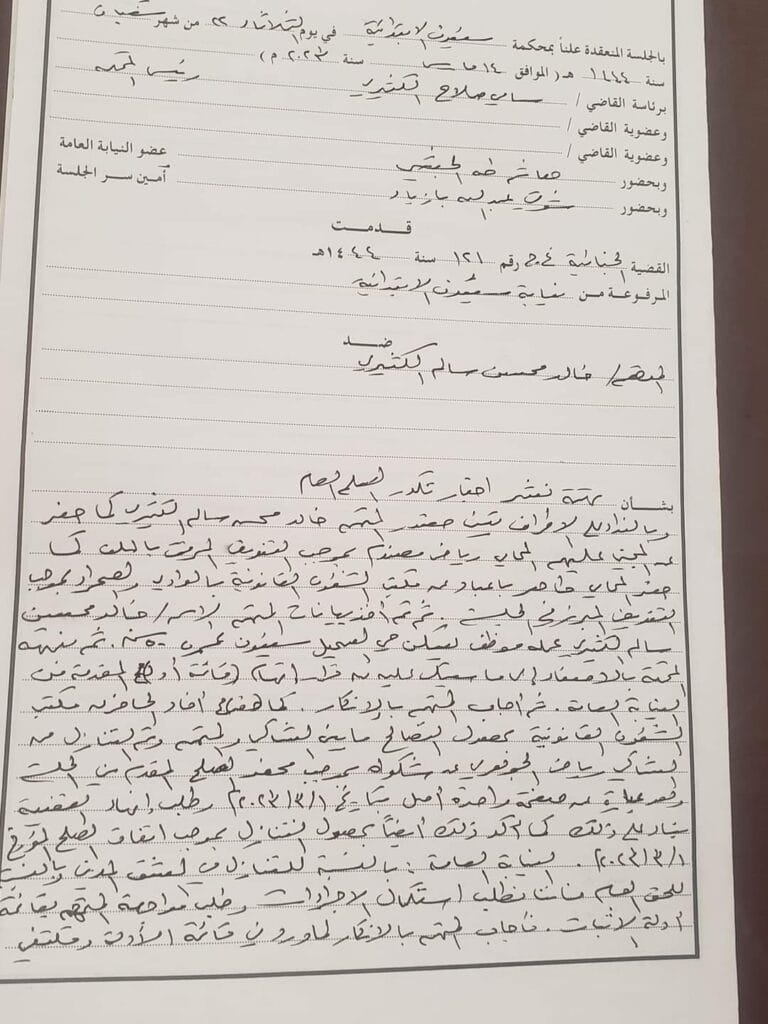 بالجلسة المنعقدة علناً بمحكمة سيئون الابتدائية في يوم الثلاثاء ٢٢ من شهر شعبان
سنة ١٤٤٤ هـ (الموافق ١٤ مارس سنة ٢٠٢٣م)
برئاسة القاضي / سامي صلاح الكثيري رئيس المحكمة
وعضوية القاضي /
وعضوية القاضي /
وبحضور طه الحبشي عضو النيابة العامة
وبحضور عبدالله بازياد أمين سر الجلسة
قدمت
القضية الجنائية غ.ج رقم ١٢١ سنة ١٤٤٤هـ
المرفوعة من نيابة سيئون الابتدائية
ضد
المتهم / خالد محسن سالم الكثيري
بشأن تهمة نشر اخبار تكدر السلم العام
وبالنداء على الاطراف تبين حضور المتهم خالد محسن سالم الكثيري كما حضر
عن المجني عليهم المحامي رياض بموجب التفويض المرفق بالملف كما
حضر المحامي باعباد عن مكتب الشئون القانونية بالوادي والصحراء بموجب
التفويض المبرز في الجلسة . ثم تم أخذ بيانات المتهم الاسم / خالد محسن
سالم الكثيري عمله موظف يسكن حي السحيل سيئون عمره ٥٠ سنة . ثم نبهته
المحكمة بالاصغاء إلى ما سيتلى عليه من قرار اتهام وقائمة أدلة المقدمة من
النيابة العامة . ثم أجاب المتهم بالإنكار . كما أفاد الحاضر عن مكتب
الشئون القانونية بحصول التصالح ما بين الشاكي والمتهم وتم التنازل من
الشاكي رياض عن شكواه بموجب محضر الصلح المقدم في الجلسة
وهو عبارة عن صفحة واحدة أصل بتاريخ ١/٣/٢٠٢٣م وطلب إنهاء القضية
بناء على ذلك كما أكد ذلك أيضاً بحصول التنازل بموجب اتفاق الصلح المؤرخ
١/٣/٢٠٢٣م . النيابة العامة : بالنسبة للتنازل في الشق المدني وبالنسبة
للحق العام فإننا نطلب استكمال الاجراءات وطلب مواجهة المتهم بقائمة
أدلة الاثبات . فأجاب المتهم بالإنكار لما ورد في قائمة الأدلة